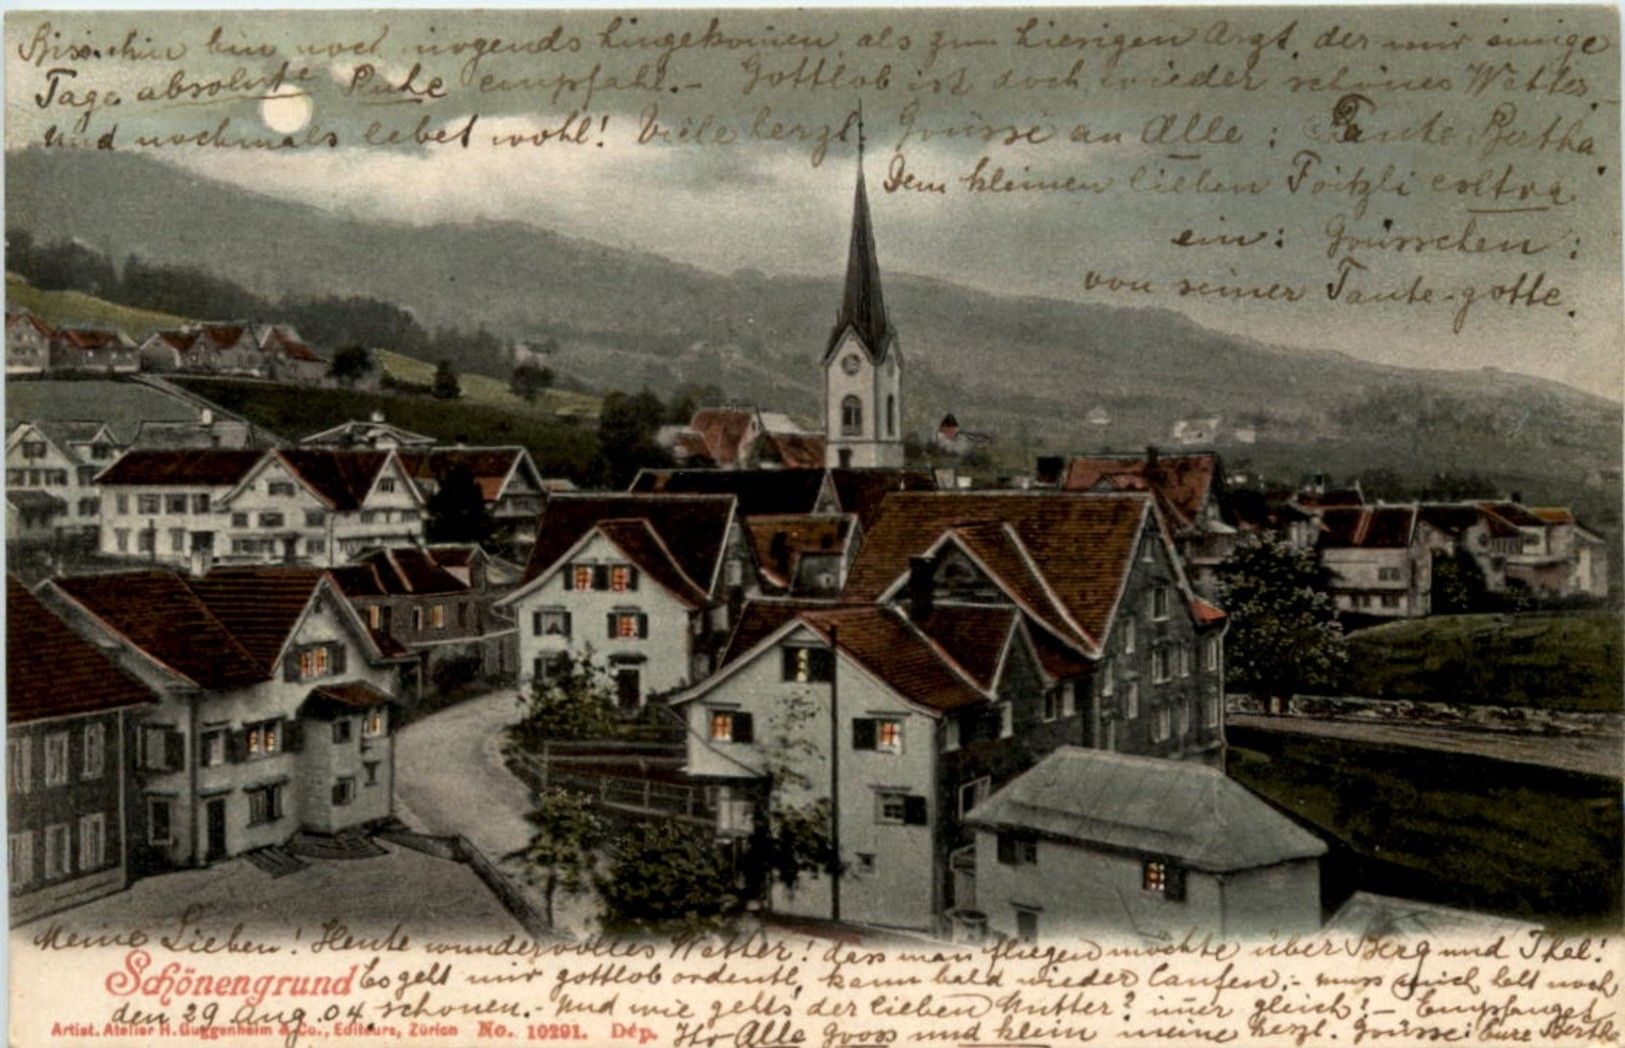 Bis hin bin noch nirgends hingekommen, als zum hiesigen Arzt, der mir einige
Tage absolute Ruhe empfahl. - Gottlob ist doch wieder schönes Wetter.
Und nochmals lebet wohl! Viele herzl. Grüsse an Alle: Tante Bertha.
Dem kleinen lieben Fritzli extra
ein: Grüsschen:
von seiner Tante-gotte.
Meine Lieben! Heute wundervolles Wetter! dass man fliegen möchte über Berg und Thal!
Schönengrund Es geht mir gottlob ordentl, kann bald wieder laufen, - muss mich halt noch
den 29 Aug. 04 schonen. - Und wie geht's der lieben Mutter? immer gleich! - Empfanget
Artist. Atelier H. Guggenheim & Co., Editeurs, Zürich No. 10291. Dép. Ihr Alle gross und klein meine herzl. Grüsse: Eure Bertha